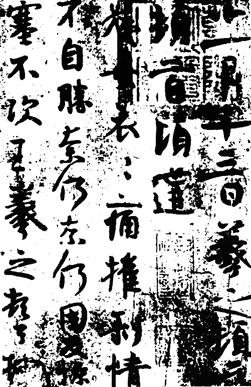 十一月十三日羲之頓
頓首頃遘
姨母哀〻痛摧剝情
不自勝奈何奈何因反慘
塞不次王羲之頓首